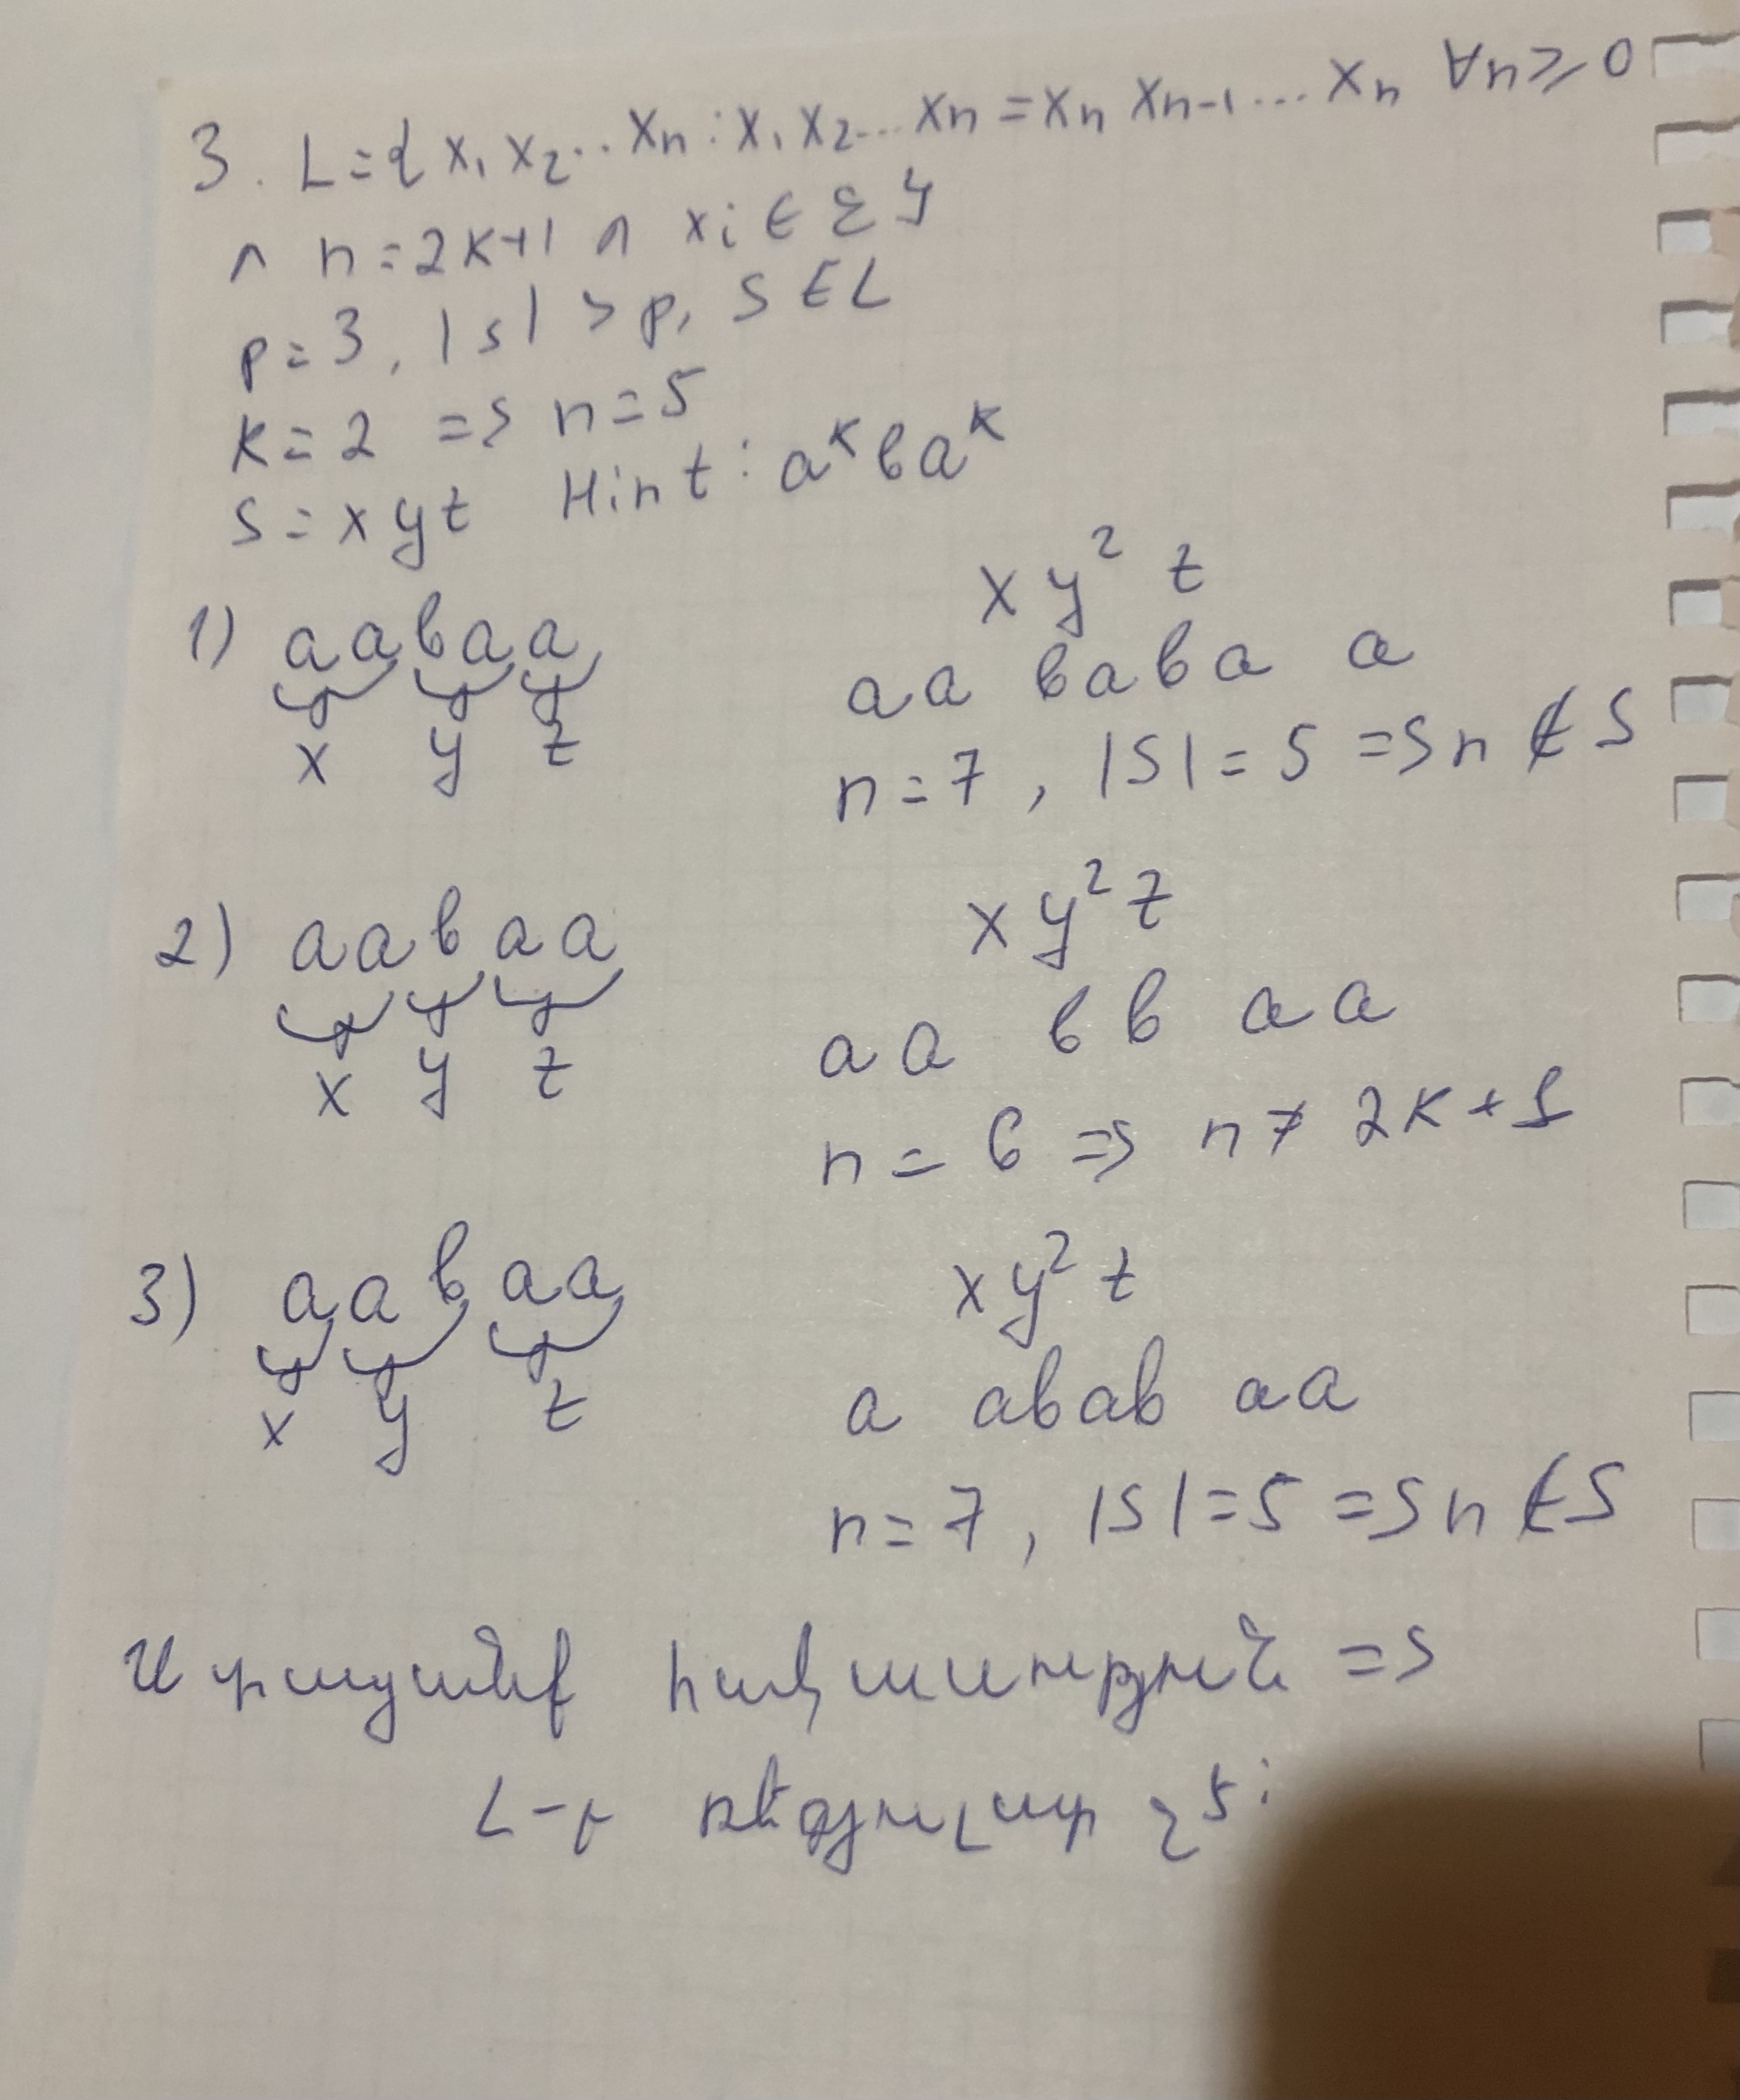 3. L={ x₁ x₂.. xₙ : x₁ x₂... xₙ = xₙ xₙ₋₁... xₙ ∀n ≥ 0
∧ n=2k+1 ∧ xᵢ ∈ Σ }
p=3, |s| > p, s ∈ L
k=2 => n=5
s = xyz Hint: aᵏbaᵏ
1) aabaa xy²z
x y z aa baba a
n=7, |S|=5 => n ∉ S
2) aabaa xy²z
x y z aa bb aa
n=6 => n ≠ 2k+1
3) aabaa xy²z
x y z a abab aa
n=7, |S|=5 => n ∉ S
Ստացանք հակասություն =>
L-ը ռեգուլյար չէ: